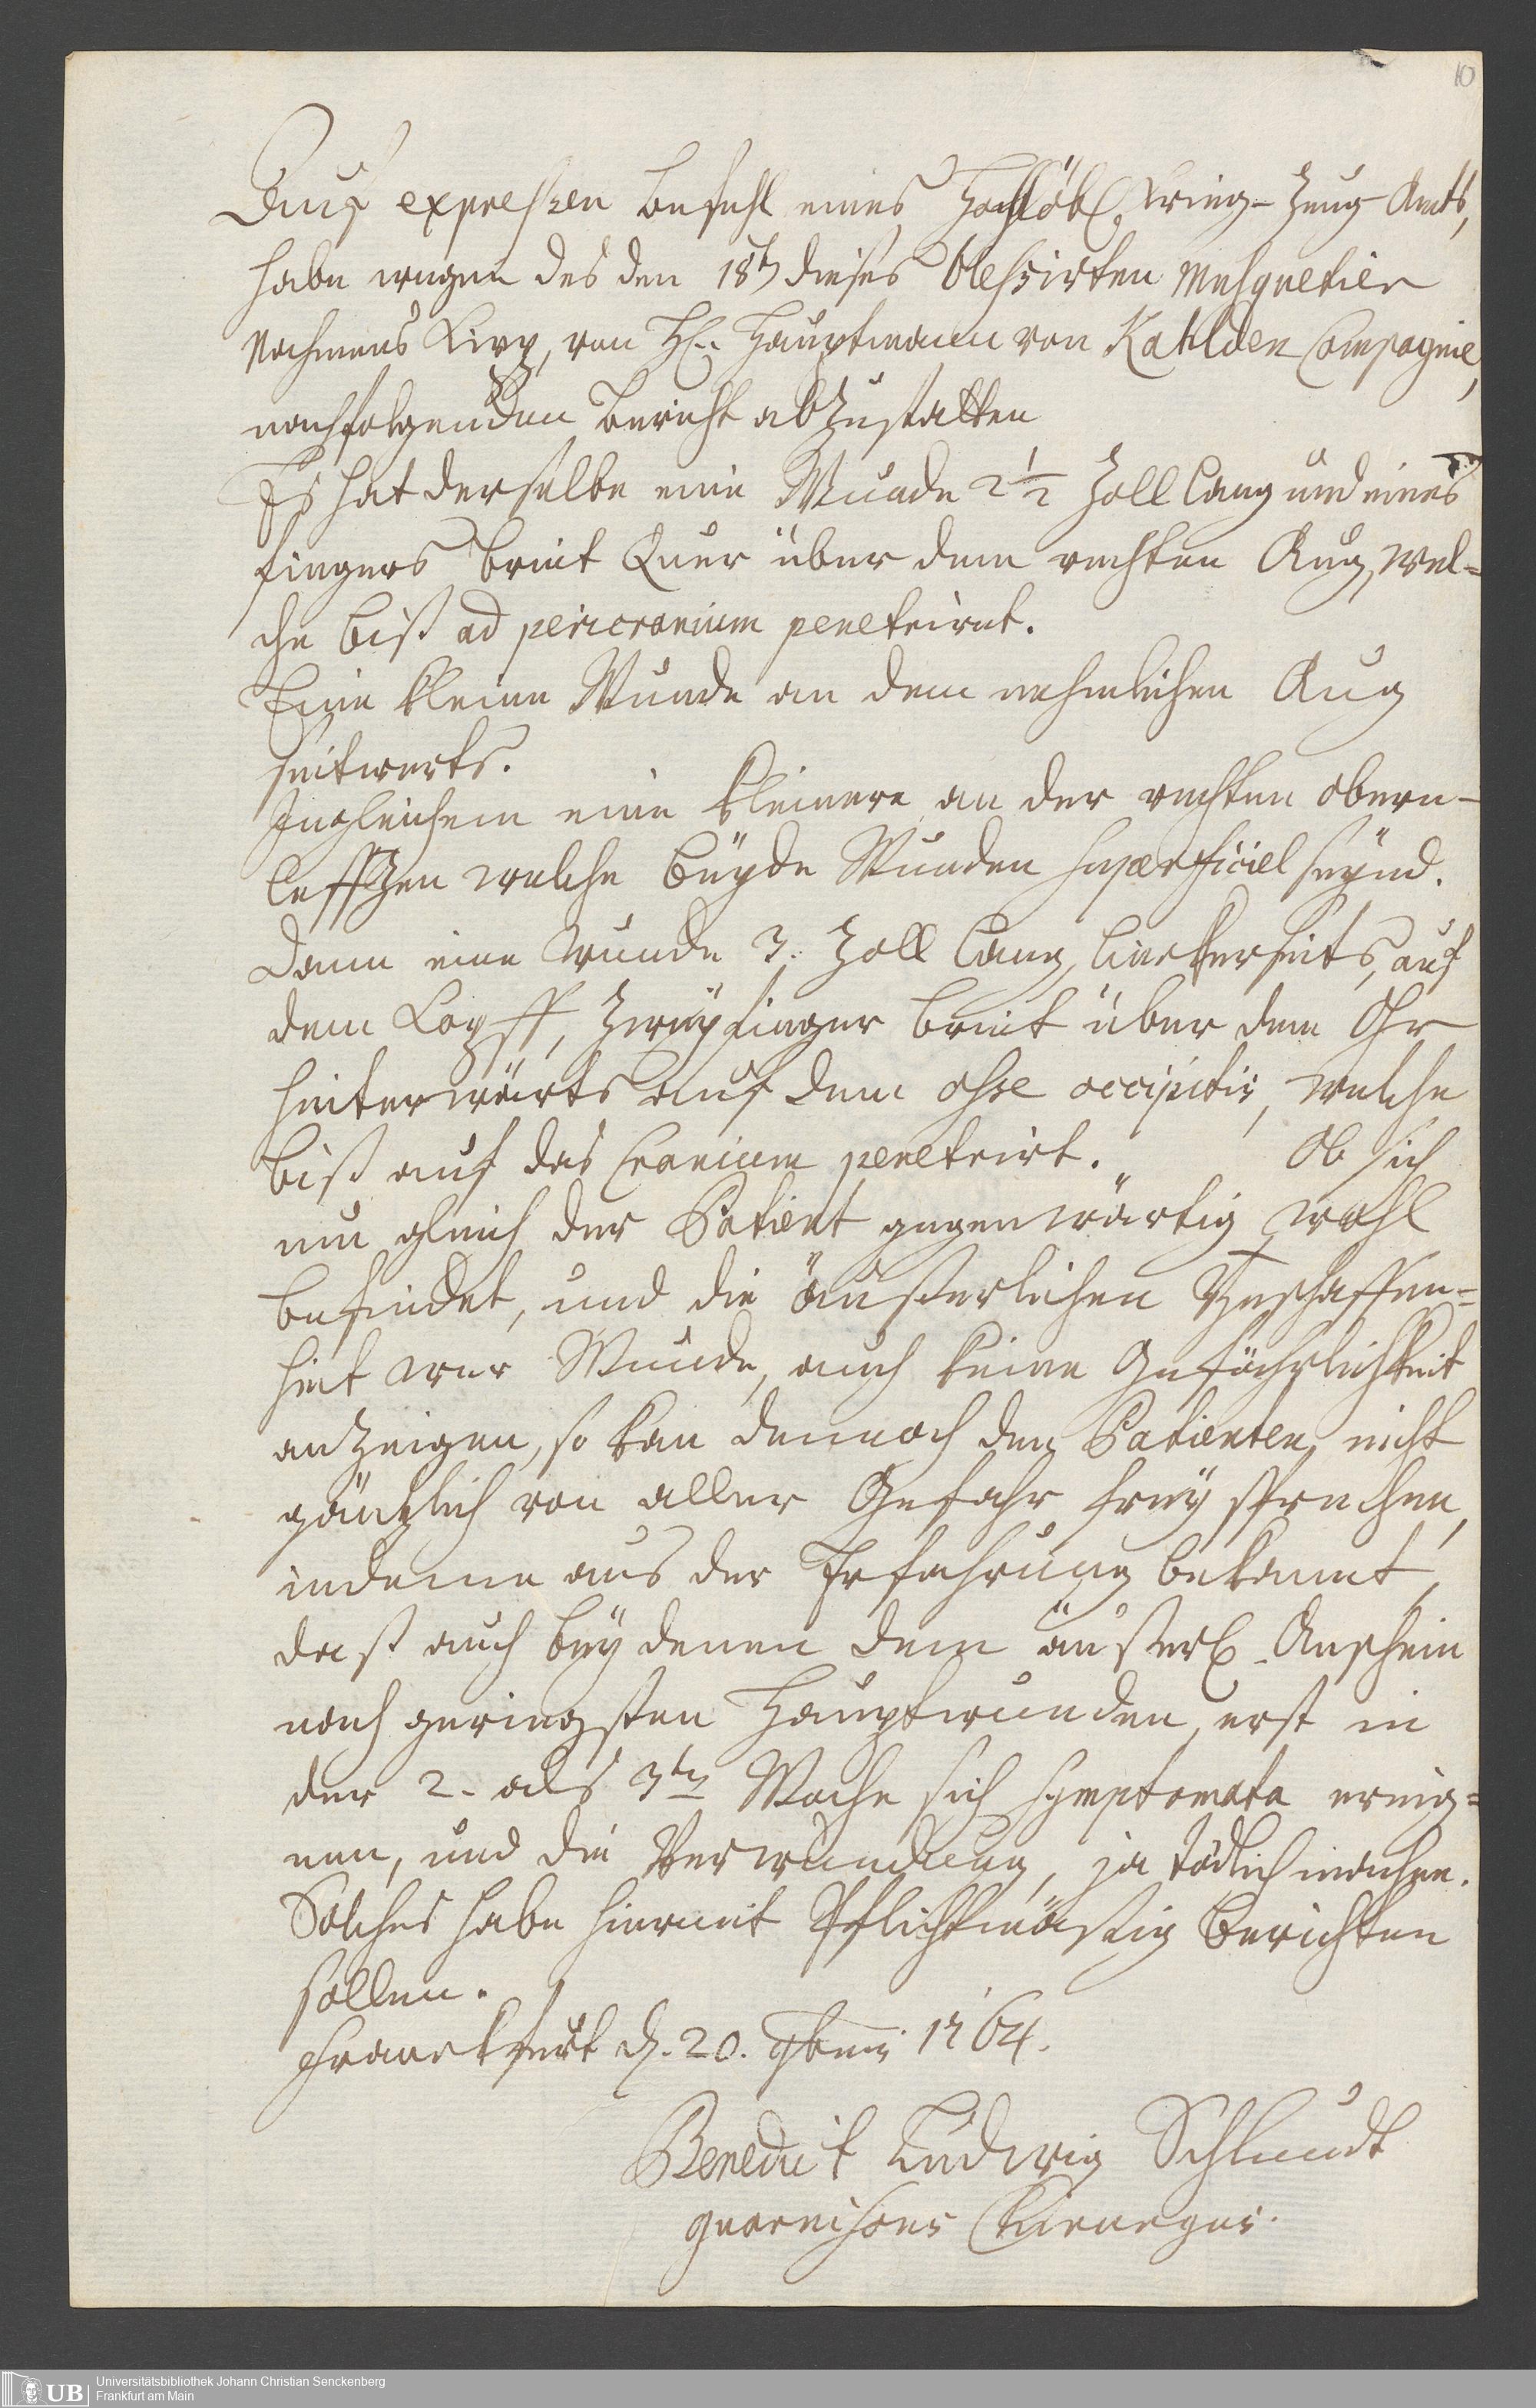 10
Auf expressen Befehl eines Hochlöbl. Krieg-Zeug Amts,
habe wegen des den 18t dieses blessirten Musquetier
Nahmens Kipp, von H. Hauptmann von Kahlden Compagnie,
nachfolgenden Bericht abzustatten
Es hat derselbe eine Wunde 2½ Zoll lang und eines
fingers breit Quer über dem rechten Aug, wel-
che biß ad pericranium penetrirt.
Eine kleine Wunde an dem nehmlichen Aug
seitwerts.
Ingleichem eine kleinere an der rechten obern-
leffzen welche beyde Wunden superficiel seynd.
Dann eine Wunde 3. Zoll lang, linckerseits, auf
dem Kopff, Zweyfinger breit über dem Ohr
hinterwärts auf dem osse occipitis, welche
biß auf das Cranium penetrirt. Ob sich
nun gleich der Patient gegenwärtig wohl
befindet, und die äusserlichen Beschaffen-
heit der Wunde, auch keine Gefährlichkeit
anzeigen, so kan dennoch den Patienten nicht
gäntzlich von aller Gefahr frey sprechen,
indeme aus der Erfahrung bekannt,
dast auch bey denen dem äusserl. Anschein
nach geringsten Hauptwunden, erst in
der 2. als 3ten Woche sich symptomata ereig-
nen, und die Verwundung, ja tödlich machen.
Solches habe hiermit Pflichtmäsig berichten
sollen.
Franckfurt d. 20. 9bris 1764.
Benedict Ludwig Schlundt
Guarnisons Chirurgus.
UB
Universitätsbibliothek Johann Christian Senckenberg
Frankfurt am Main